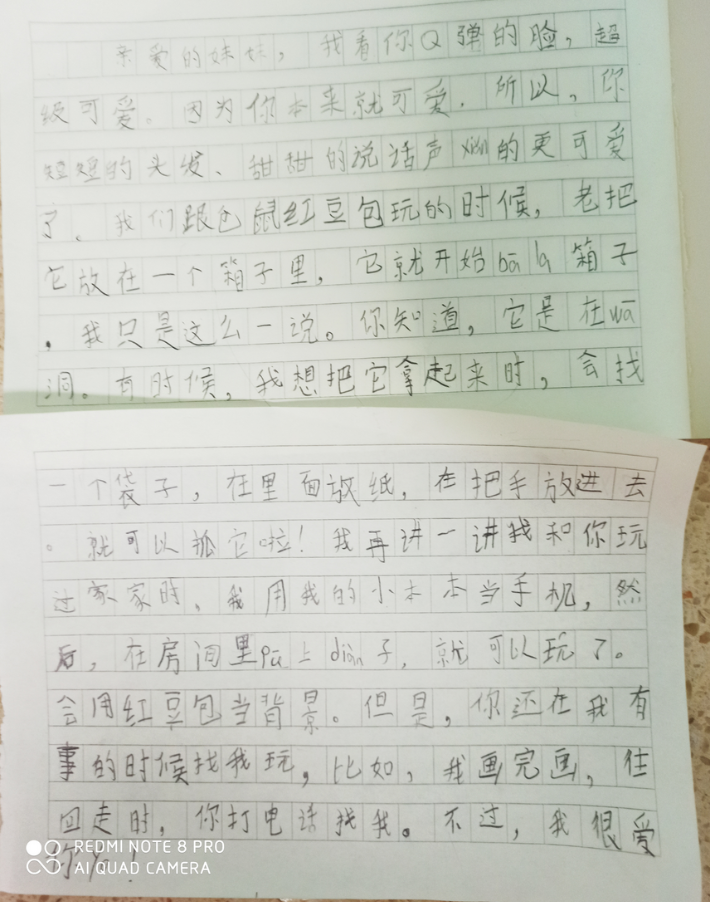 亲爱的妹妹，我看你Q弹的脸，超
级可爱。因为你本来就可爱．所以，你
短短的头发、甜甜的说话声 的更可爱
了、我们跟仓鼠红豆包玩的时候，老把
它放在一个箱子里，它就开始bā la箱子
．我只是这么一说。你知道，它是在wā
洞。有时候，我想把它拿起来时，会找
一个袋子，在里面放纸，在把手放进去
。就可以抓它啦！我再讲一讲我和你玩
过家家时、我用我的小本本当手机，然
后，在房间里pū上diàn子，就可以玩了。
会用红豆包当背景。但是，你还在我有
事的时候找我玩，比如，我画完画，往
回走时，你打电话找我。不过，我很爱
你ya！
REDMI NOTE 8 PRO
AI QUAD CAMERA